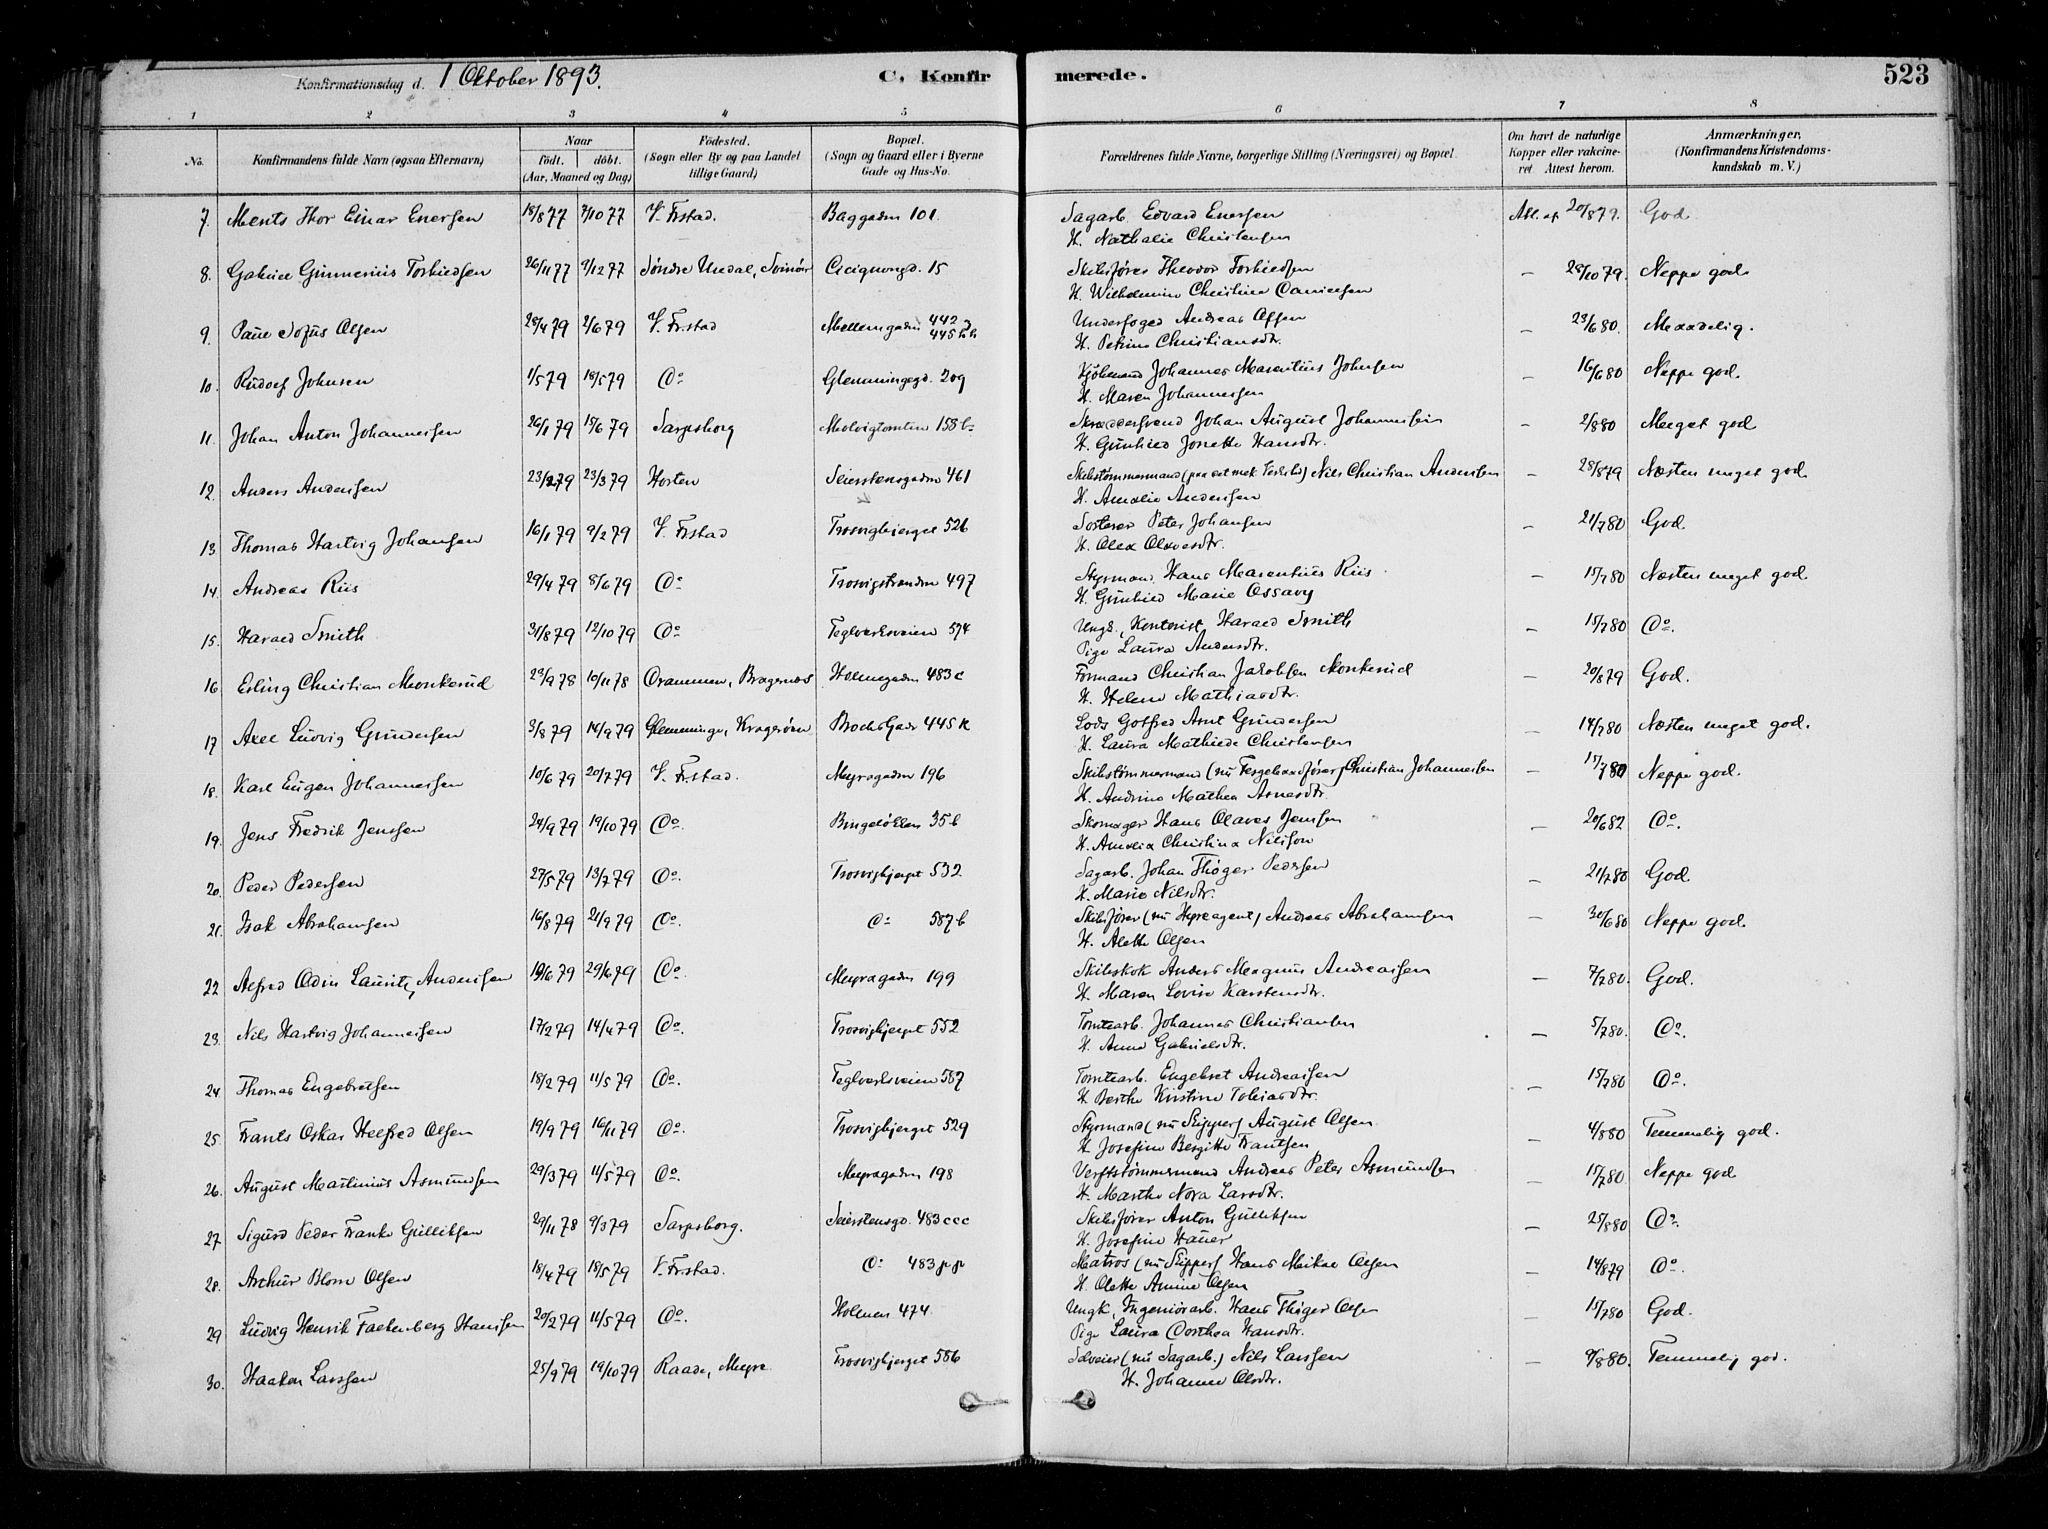 Konfirmationsdag d. 1 Oktober 1893.
C. Konfirmerede.
523
1 2 3 4 5 6 7 8
No.
Konfirmandens fulde Navn (ogsaa Efternavn)
Naar
født. døbt.
(Aar, Maaned og Dag)
Fødested.
(Sogn eller By og paa Landet
tillige Gaard)
Bopæl.
(Sogn og Gaard eller i Byerne
Gade og Hus-No.
Forældrenes fulde Navne, borgerlige Stilling (Næringsvei) og Bopæl.
Om havt de naturlige
Kopper eller vakcine-
ret. Attest herom.
Anmærkninger,
(Konfirmandens Kristendoms-
kundskab m. V.)
7. Ments Thor Einar Enersen 18/8 77 7/10 77 V. Frstad. Baggaden 101. Sagarb. Edvard Enersen Att. af 20/8 79. God
H. Nathalie Christensen
8. Gabriel Gunnerius Torkildsen 26/11 77 9/12 77 Søndre Undal, Svinør Cicignongd. 15 Skibsfører Theodor Torkildsen — 28/10 79. Neppe god.
H. Wilhelmine Christine Danielsen
9. Paul Sofus Olsen 28/4 79 2/6 79 V. Frstad Mellemgaden 442 Underfoged Andreas Olsen — 23/6 80. Maadelig.
445 hh H. Petrine Christiansdtr.
10. Rudolf Johnsen 1/5 79 18/5 79 Do Glemmingegd. 209 Kjøbmand Johannes Marentius Johnsen — 16/6 80 Neppe god.
H. Maren Johannesen
11. Johan Anton Johannessen 26/1 79 15/6 79 Sarpsborg Molvigtomten 158 b Skræddersvend Johan August Johannessen — 2/8 80 Meget god
H. Gunhild Jonette Hansdtr.
12. Anders Andersen 23/2 79 23/3 79 Horten Seierstensgaden 461 Skibstømmermand (paa et mek. Værksted) Nils Christian Andersen — 28/8 79 Næsten meget god.
H. Amalie Andersen
13. Thomas Hartvig Johansen 16/1 79 9/2 79 V. Frstad Trosvigbjerget 526 Sorterer Peter Johansen — 21/7 80 God.
H. Olea Olavesdtr.
14. Andreas Riis 29/4 79 8/6 79 Do Trosvigstranden 497 Styrmand. Hans Marentius Riis. — 15/7 80 Næsten meget god.
H. Gunhild Marie Ossavy
15. Harald Smith 31/8 79 12/10 79 Do Teglverksveien 574 Ungk., Kontorist Harald Smith — 15/7 80 Do.
Pige Laura Andersdtr.
16. Erling Christian Monkerud 23/9 78 10/11 78 Drammen, Bragernæs Holmegaden 483 c Formand Christian Jakobsen Monkerud — 20/8 79 God.
H. Helene Mathiasdtr.
17. Axel Ludvig Gundersen 3/8 79 14/9 79 Glemminge, Kragerøen Brochsgade 445 k Lods Gotfred Arnt Gundersen — 14/7 80 Næsten meget god.
H. Laura Mathilde Christensen
18. Karl Eugen Johannessen 10/6 79 20/7 79 V. Frstad. Myragaden 196 Skibstømmermand (nu Færgebaadfører) Christian Johannessen — 15/7 80 Neppe god.
H. Andrine Mathea Arnesdtr.
19. Jens Fredrik Jenssen 24/9 79 19/10 79 Do. Bingeløkken 35 b Skomager Hans Olaves Jenssen — 20/6 82 Do.
H. Amalia Christina Nilsson
20. Peder Pedersen 27/5 79 13/7 79 Do. Trosvigbjerget 532 Sagarb. Johan Thøger Pedersen — 21/7 80 God
H. Marie Nilsdtr.
21. Isak Abrahamsen 16/8 79 21/9 79 Do. Do 587 b Skibsfører (nu Hyreagent) Andreas Abrahamsen — 30/6 80 Neppe god.
H. Alette Olsen
22 Alfred Odin Lauritz Anderssen 19/6 79 29/6 79 Do. Myragaden 199 Skibskok Anders Magnus Andreassen — 7/7 80. God.
H. Maren Lovise Karstensdtr.
23. Nils Hartvig Johannessen 17/2 79 14/4 79 Do. Trosvigbjerget 552 Tomtearb. Johannes Christiansen — 5/7 80. Do.
H. Anne Gabrielsdtr.
24. Thomas Engebretsen 18/2 79 11/5 79 Do. Teglverksveien 587 Tomtearb. Engebret Andreassen — 15/7 80 Do.
H. Berthe Kirstine Tobiasdtr.
25. Frants Oskar Helfred Olsen 19/9 79 16/11 79 Do. Trosvigbjerget 529 Styrmand (nu Skipper) August Olsen — 4/8 80 Temmelig god.
H. Josefine Bergitte Frantsen
26. August Martinius Asmundsen 29/3 79 11/5 79 Do. Myragaden 198 Verftstømmermand Andreas Peter Asmundsen — 15/7 80. Neppe god
H. Marthe Nora Larsdtr.
27. Sigurd Peder Franke Gulliksen 29/11 78 9/3 79 Sarpsborg. Seierstensgd. 483 ccc Skibsfører Anton Gulliksen — 25/8 80 Do.
H. Josefine Hauer
28. Arthur Blom Olsen 18/4 79 18/5 79 V. Frstad. Do 483 pp Matros (nu Skipper) Hans Mikal Olsen — 14/8 79 Do.
H. Olette Amine Olsen
29 Ludvig Henrik Falkenberg Hanssen 20/2 79 11/5 79 Do. Holmen 474. Ungk., Ingeniørarb. Hans Thøger Olsen — 15/7 80 God.
Pige Laura Dorthea Hansdtr.
30. Haaken Larssen 25/9 79 19/10 79 Raade, Myre Trosvigbjerget 586 Selveier (nu Sagarb.) Nils Larssen — 9/8 80. Temmelig god.
H. Johanne Olsdtr.